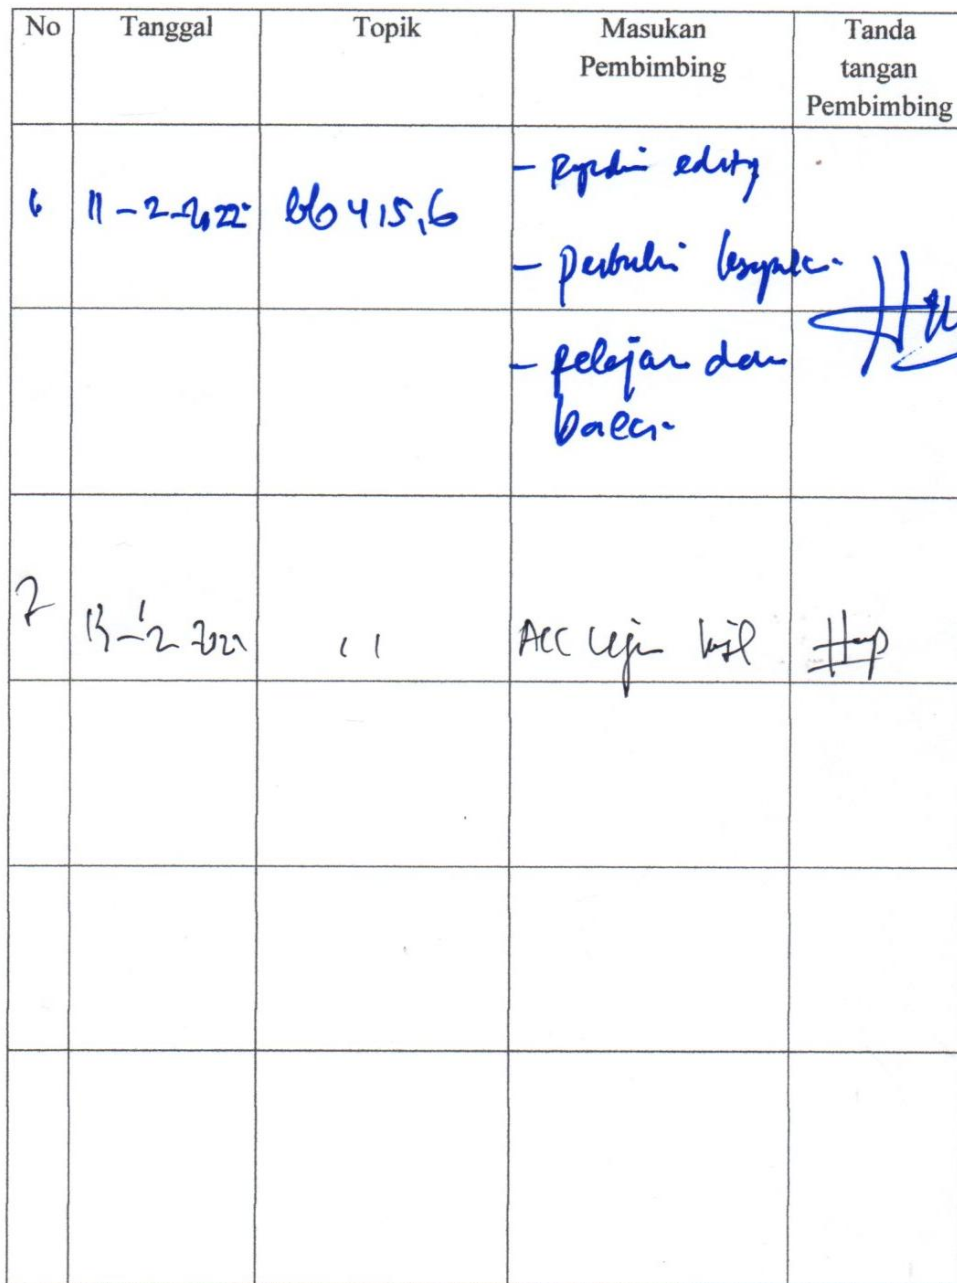 No Tanggal Topik Masukan Pembimbing Tanda tangan Pembimbing
6 11-2-2022 bb 4,5,6
- editing
- Perbaiki
- pelajari dan
baca
7 2 2022 ʼʼ ACC Ujian hasil